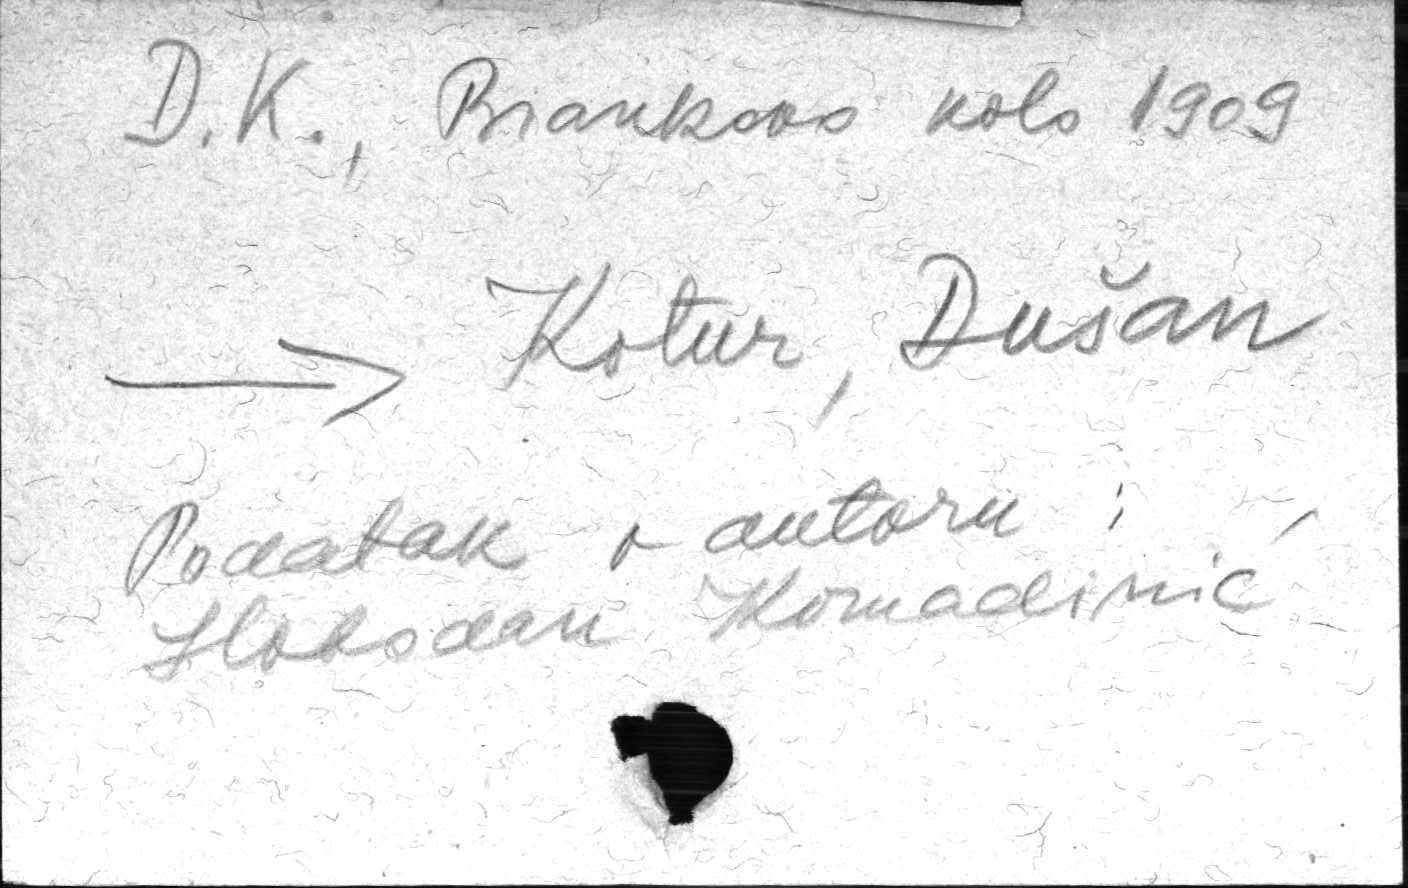 D.K., Brankovo kolo 1909
→ Kotur, Dušan
Podatak o autoru :
Slobodan Komadinić